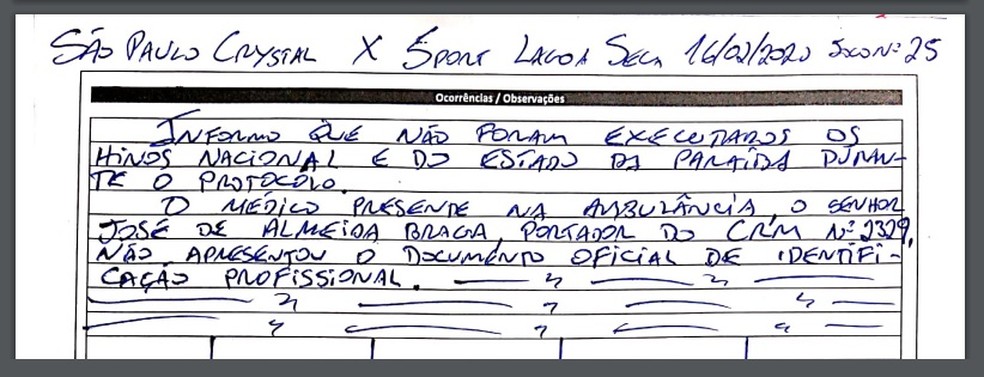 SÃO PAULO CRYSTAL X SPORT LAGOA SECA 16/02/2020 JOGO Nº 25
Ocorrências / Observações
INFORMO QUE NÃO FORAM EXECUTADOS OS
HINOS NACIONAL E DO ESTADO DA PARAÍBA DURAN-
TE O PROTOCOLO.
O MÉDICO PRESENTE NA AMBULÂNCIA, O SENHOR
JOSÉ DE ALMEIDA BRAGA, PORTADOR DO CRM Nº 2329,
NÃO APRESENTOU O DOCUMENTO OFICIAL DE IDENTIFI-
CAÇÃO PROFISSIONAL.